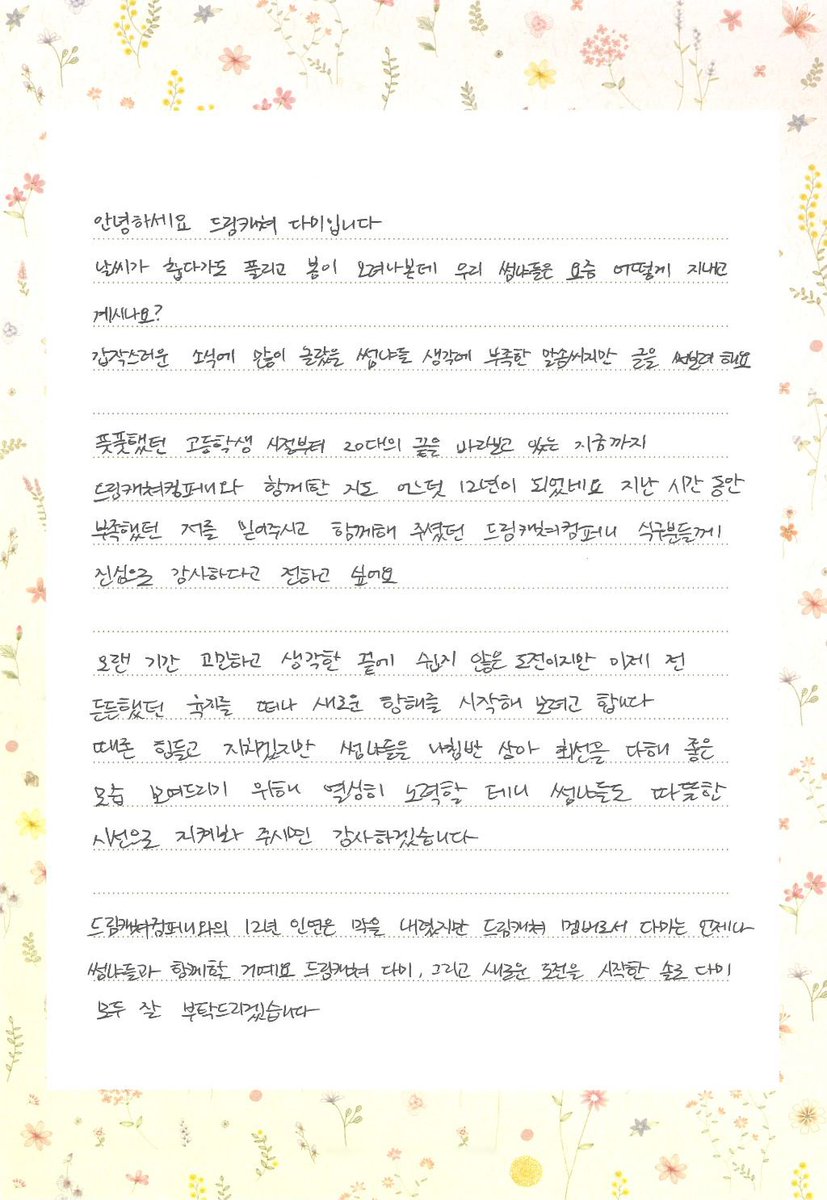 안녕하세요 드림캐쳐 다미입니다
날씨가 춥다가도 풀리고 봄이 오려나본데 우리 썸냐들은 요즘 어떻게 지내고
계시나요?
갑작스러운 소식에 많이 놀랐을 썸냐들 생각에 부족한 말솜씨지만 글을 써보려 해요
풋풋했던 고등학생 시절부터 20대의 끝을 바라보고 있는 지금까지
드림캐쳐컴퍼니와 함께한 지도 어느덧 12년이 되었네요 지난 시간 동안
부족했던 저를 믿어주시고 함께해 주셨던 드림캐쳐컴퍼니 식구분들께
진심으로 감사하다고 전하고 싶어요
오랜 기간 고민하고 생각한 끝에 쉽지 않은 도전이지만 이제 전
든든했던 육지를 떠나 새로운 항해를 시작해 보려고 합니다
때론 힘들고 지치겠지만 썸냐들을 나침반 삼아 최선을 다해 좋은
모습 보여드리기 위해 열심히 노력할 테니 썸냐들도 따뜻한
시선으로 지켜봐 주시면 감사하겠습니다
드림캐쳐컴퍼니와의 12년 인연은 막을 내렸지만 드림캐쳐 멤버로서 다미는 언제나
썸냐들과 함께할 거예요 드림캐쳐 다미, 그리고 새로운 도전을 시작한 솔로 다미
모두 잘 부탁드리겠습니다